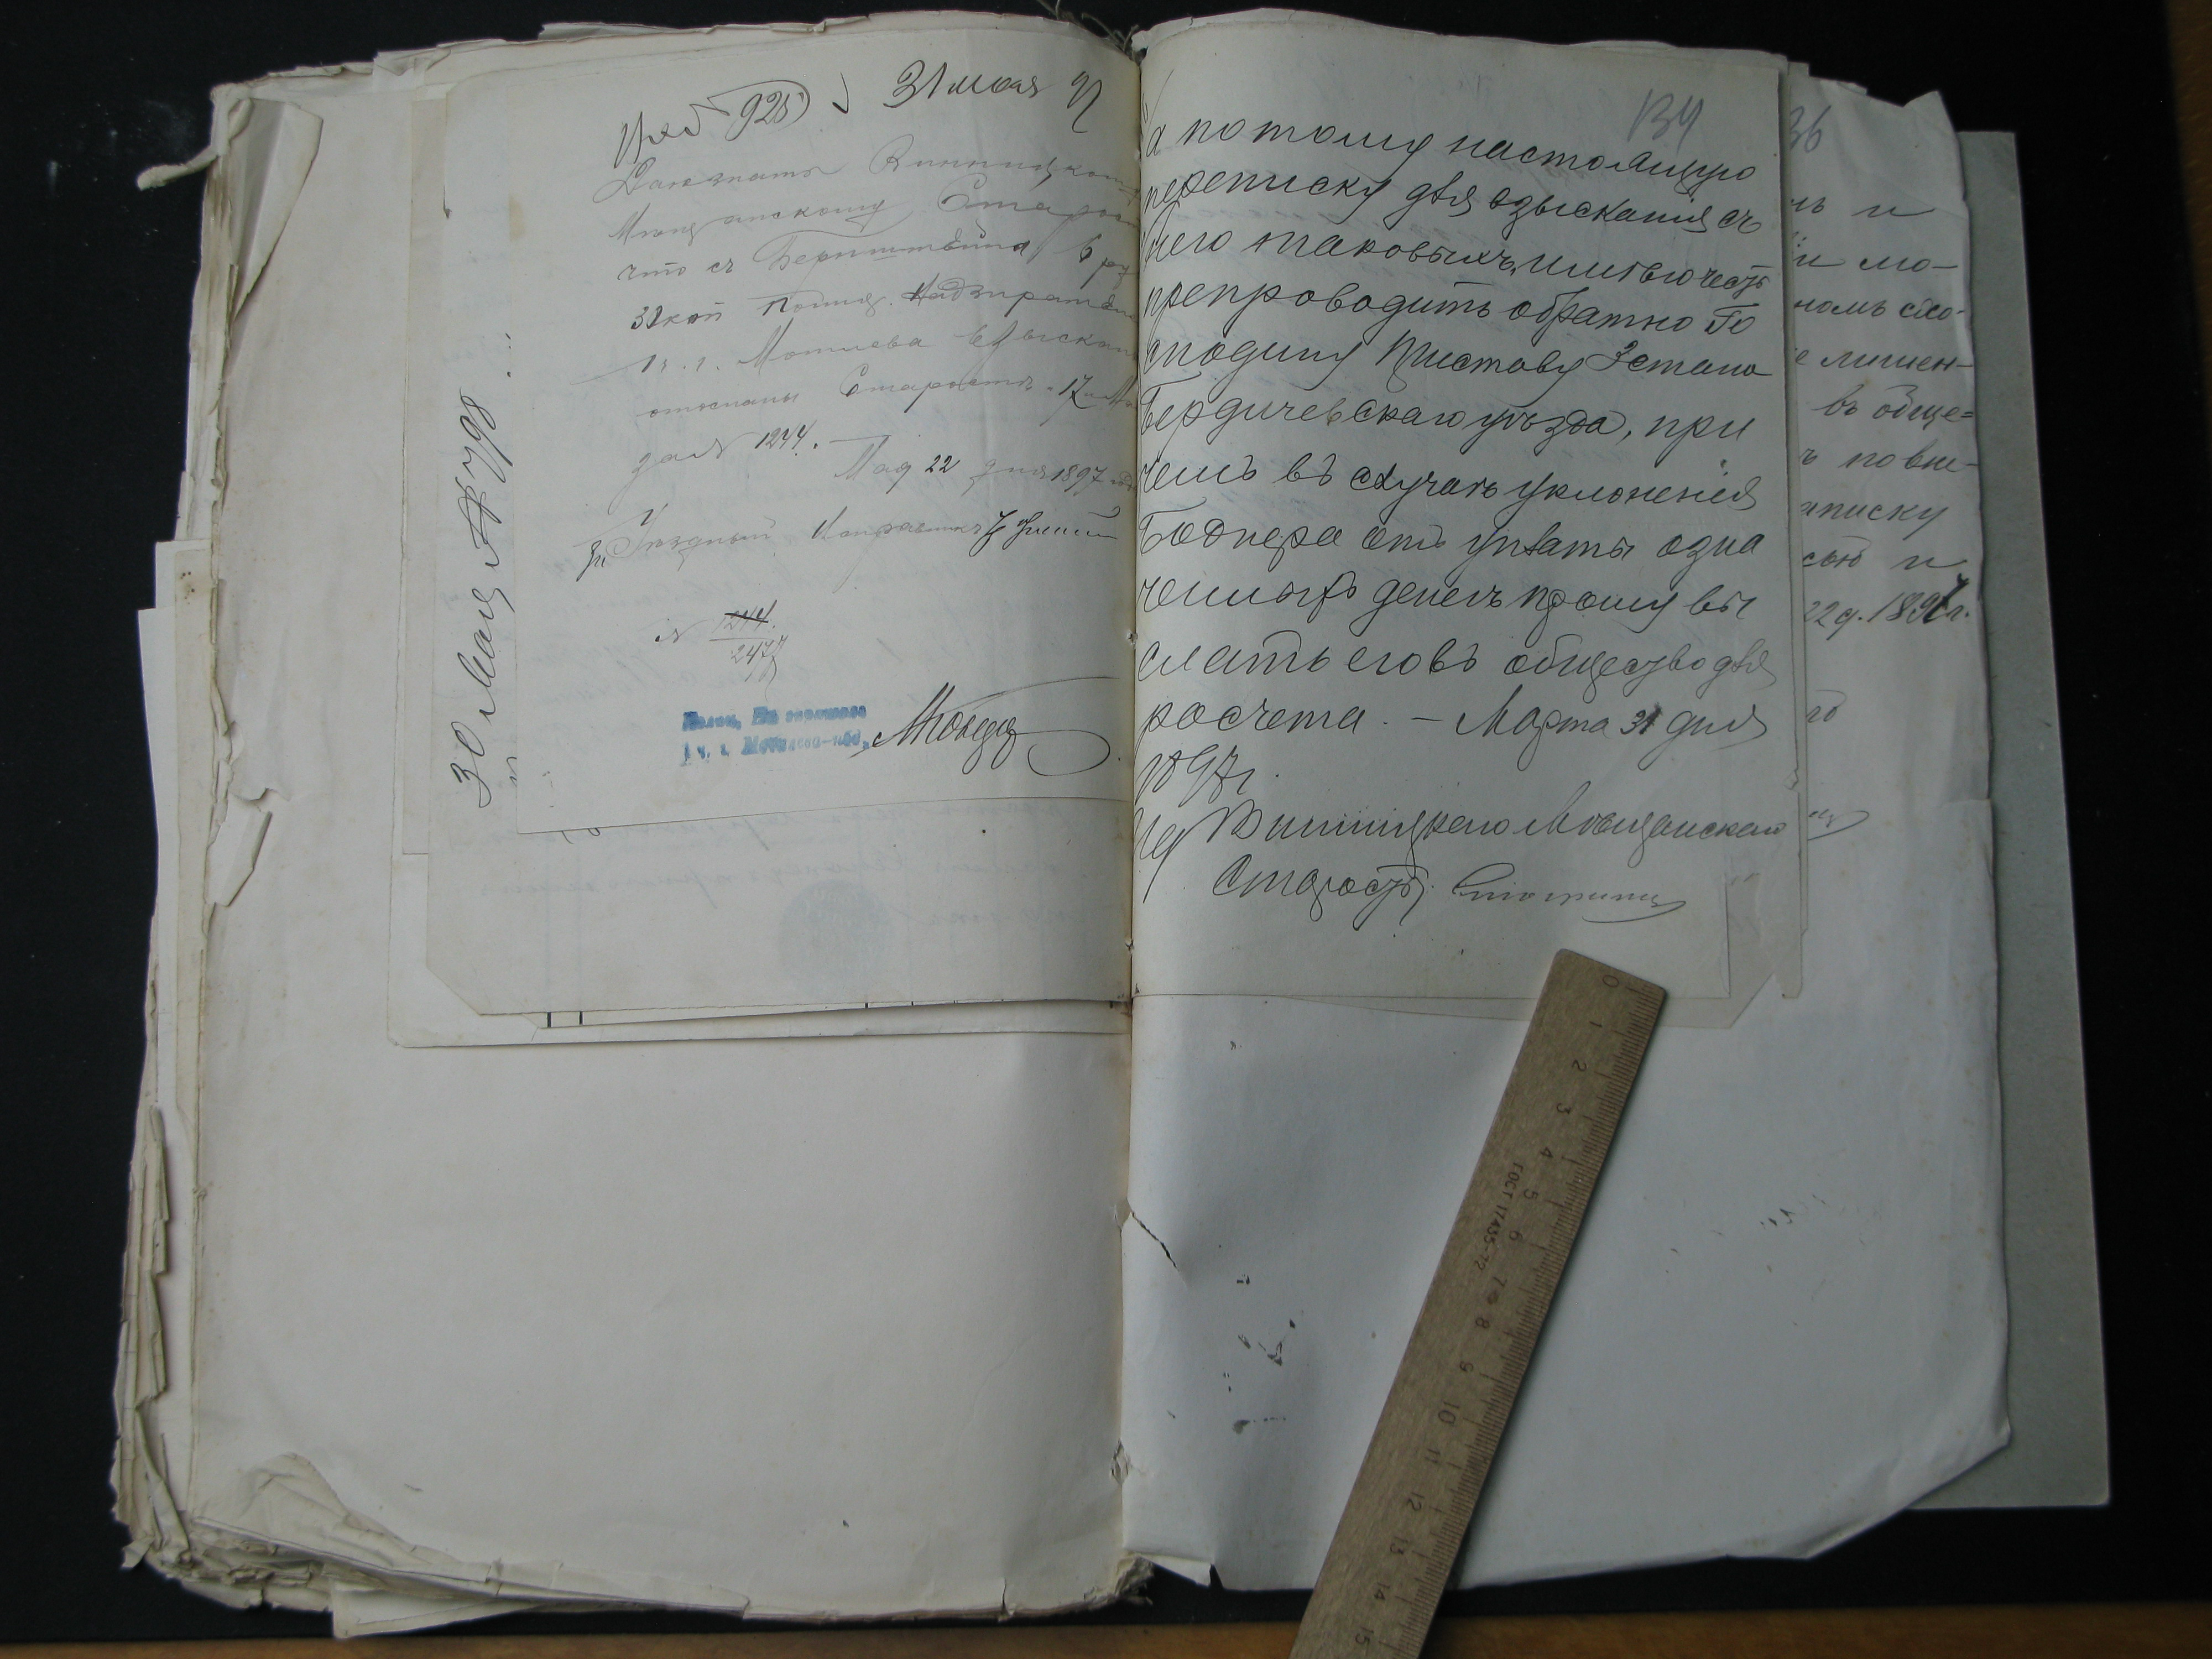 925 31 мая 97
Дать знать Винницком
Мещанскому Старос
что съ Бернштейна 6 ру
32 коп Полиц. Надзирател
1 ч. г. Могилева взыскан
отосланы Старостѣ 17 Ма
за № 1244.
Мая 22 дня 1897 год
Уѣздный Исправникъ
№ 1244.
2477
Полиц. Надзиратель
1 ч. г. Могилева-под.
30 Мая № 798
134
а потому настоящую
переписку для взысканія съ
него таковыхъ, имѣю честь
препроводить обратно Го
сподину Приставу 3 стана
Бердичевскаго уѣзда, при
чемъ въ случаѣ уклоненія
Боднера отъ уплаты озна
ченныхъ денегъ прошу вы
слать его въ общество для
расчета. — Марта 31 дня
1897 г.
Винницкаго Мѣщанскаго
Старосты
36
ъ и
и мо-
номъ сто-
е лишен-
въ обще=
ъ повин-
аписку
сью и
22 д. 1897 г.
го
0 1 2 3 4 5 6 7 8 9 10 11 12 13 14 15
ГОСТ 17435-72